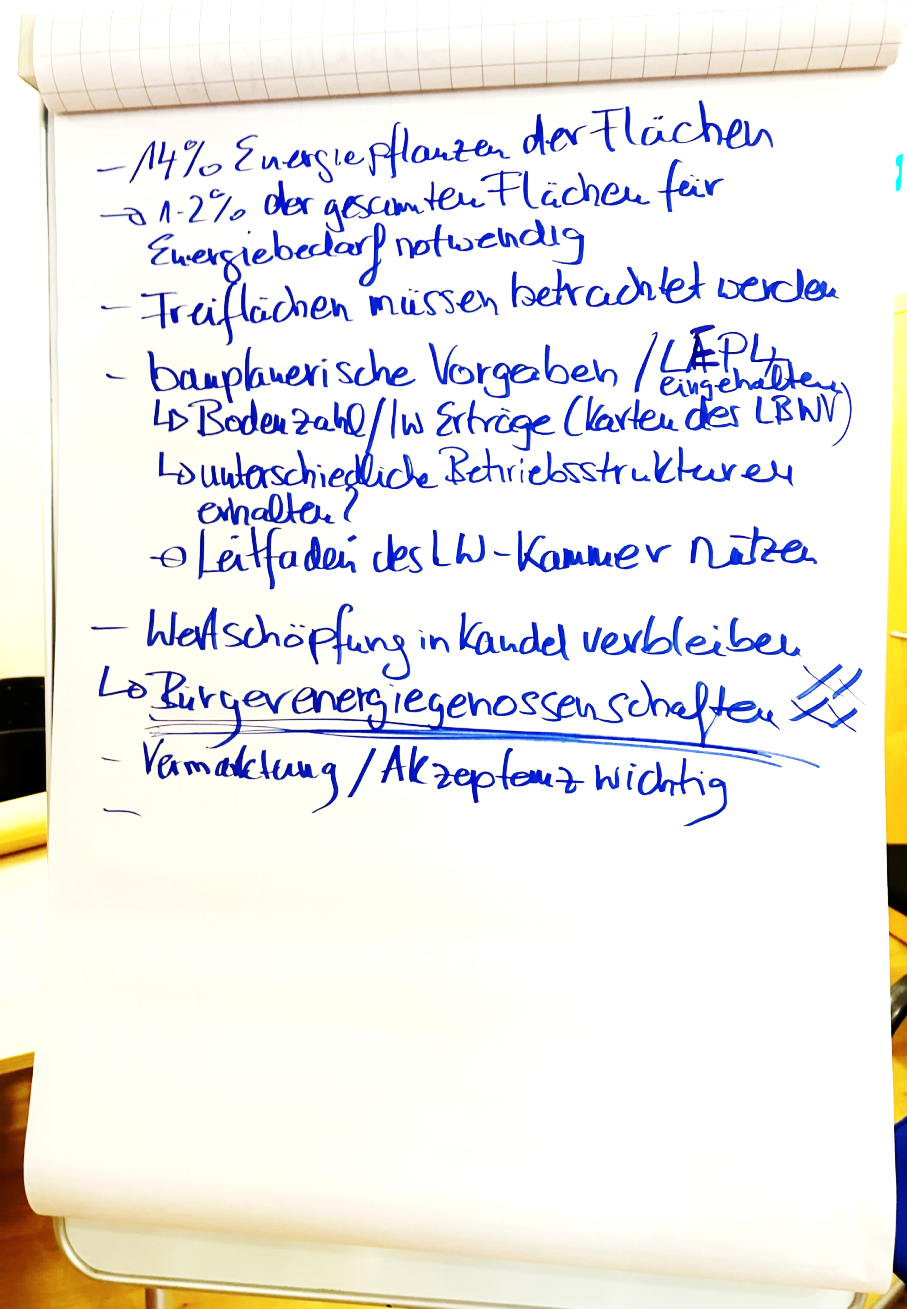 - 14% Energiepflanzen der Flächen
→ 1-2% der gesamten Flächen für
Energiebedarf notwendig
- Freiflächen müssen betrachtet werden
- bauplanerische Vorgaben / LEP4
eingehalten
↳ Bodenzahl / lw Erträge (Karten des LBWV)
↳ unterschiedliche Betriebsstrukturen
erhalten?
→ Leitfaden des LW-Kammer nutzen
- Wertschöpfung in Kandel verbleiben
↳ Bürgerenergiegenossenschaften
- Vermarktung / Akzeptanz wichtig
-